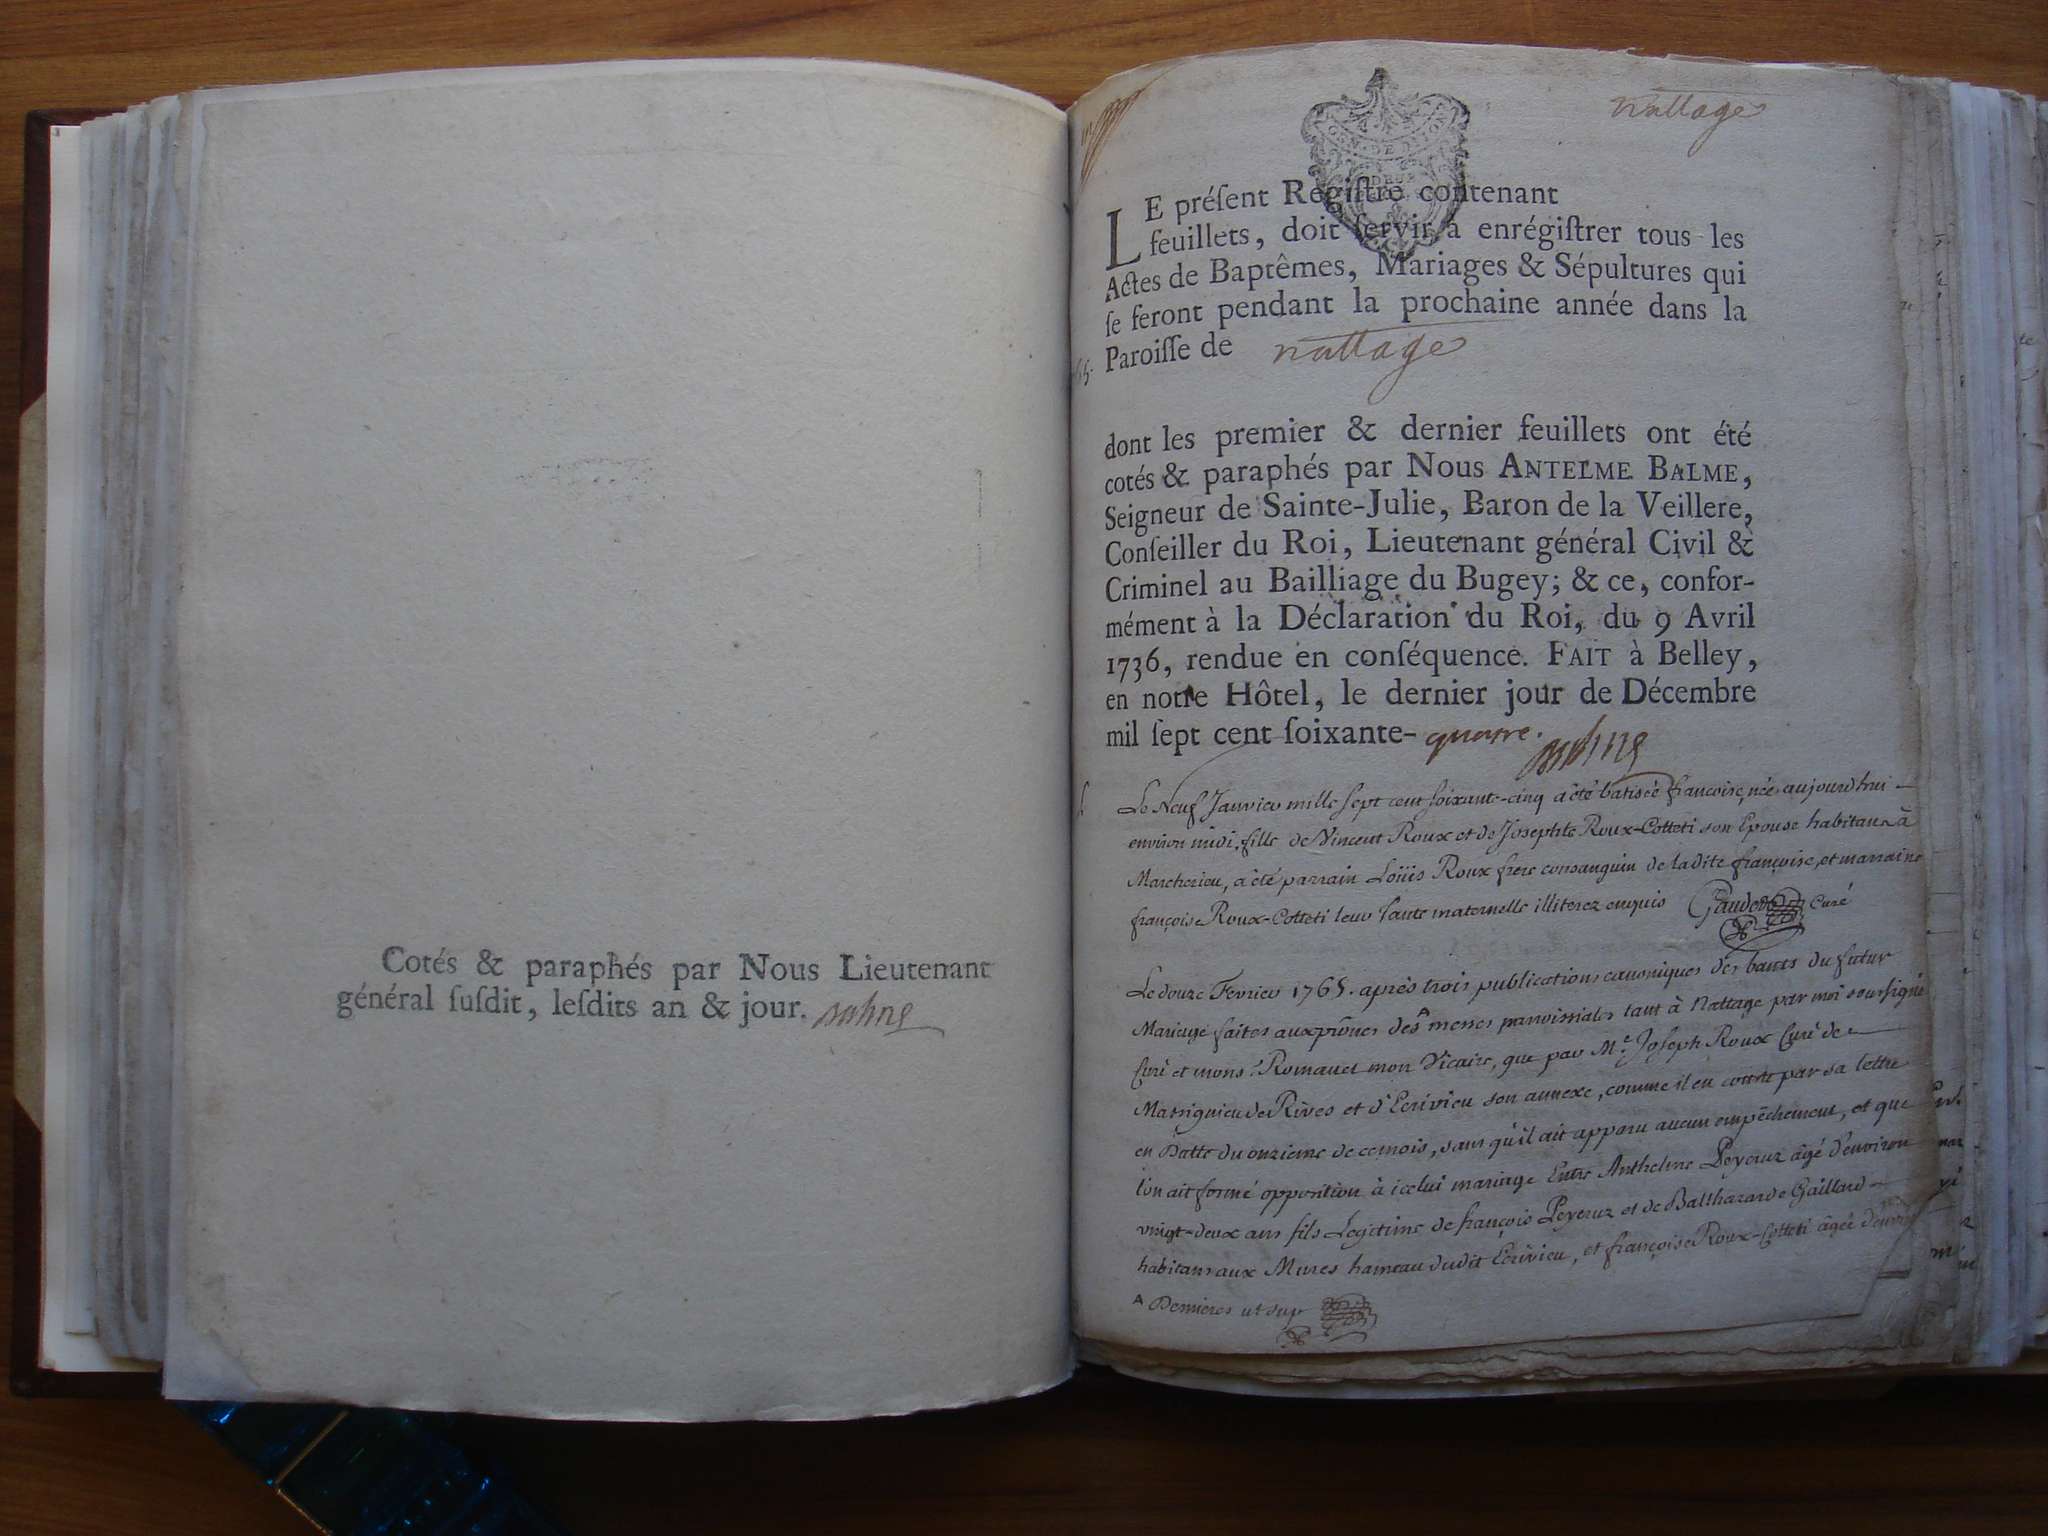 Cotés & paraphés par Nous Lieutenant
général ſuſdit, leſdits an & jour.
nattage
LE préſent Regiſtre contenant
feuillets, doit ſervir à enrégiſtrer tous les
Actes de Baptêmes, Mariages & Sépultures qui
ſe feront pendant la prochaine année dans la
Paroiſſe de nattage
dont les premier & dernier feuillets ont été
cotés & paraphés par Nous ANTELME BALME,
Seigneur de Sainte-Julie, Baron de la Veillere,
Conſeiller du Roi, Lieutenant général Civil &
Criminel au Bailliage du Bugey; & ce, confor-
mément à la Déclaration du Roi, du 9 Avril
1736, rendue en conſéquence. FAIT à Belley,
en notre Hôtel, le dernier jour de Décembre
mil ſept cent ſoixante-quatre.
Le Neuf Janvier mille sept cent soixante-cinq a été batisée francoise, née aujourd'hui
environ midi, fille de Vincent Roux et de Josephte Roux-Colleti son Epouse habitans à
a été parrain Loüis Roux frere consanguin de ladite françoise, et marraine
françoise Roux-Colleti leur tante maternelle illiterez enquis Curé
Le douze Fevrier 1765. après trois publications canoniques des bancs du futur
Mariage faites aux prônes des messes parroissiales tant à Nattage par moi soussigné
Curé et mons. mon Vicaire, que par Mr. Joseph Roux Curé de
de Rives et d'Ecrivieu son annexe, comme il en conste par sa lettre
en Datte du onzieme de ce mois, sans qu'il ait apparu aucun empêchement, et que
l'on ait formé opposition à icelui mariage Entre Anthelme Peyeruz âgé d'environ
vingt-deux ans fils Legitime de françois Peyeruz et de Balthazarde Gaillard
habitans aux Mures hameau dudit Ecrivieu, et françoise Roux-Colleti âgée
^ Dernieres ut sup